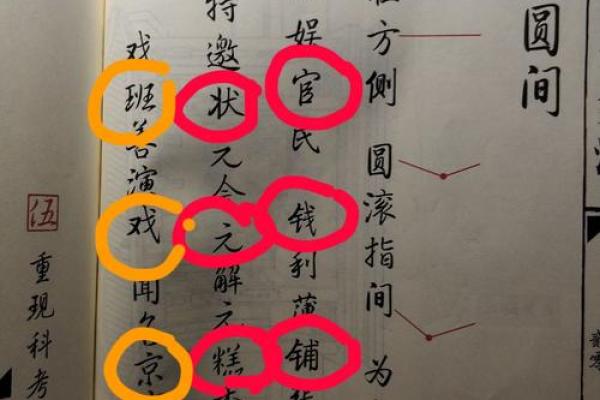 圆间
方侧 圆滚指间 为
娱官民 钱利 铺
特邀状元会元解元糕
戏班善演戏 闻名京
伍 重现科考